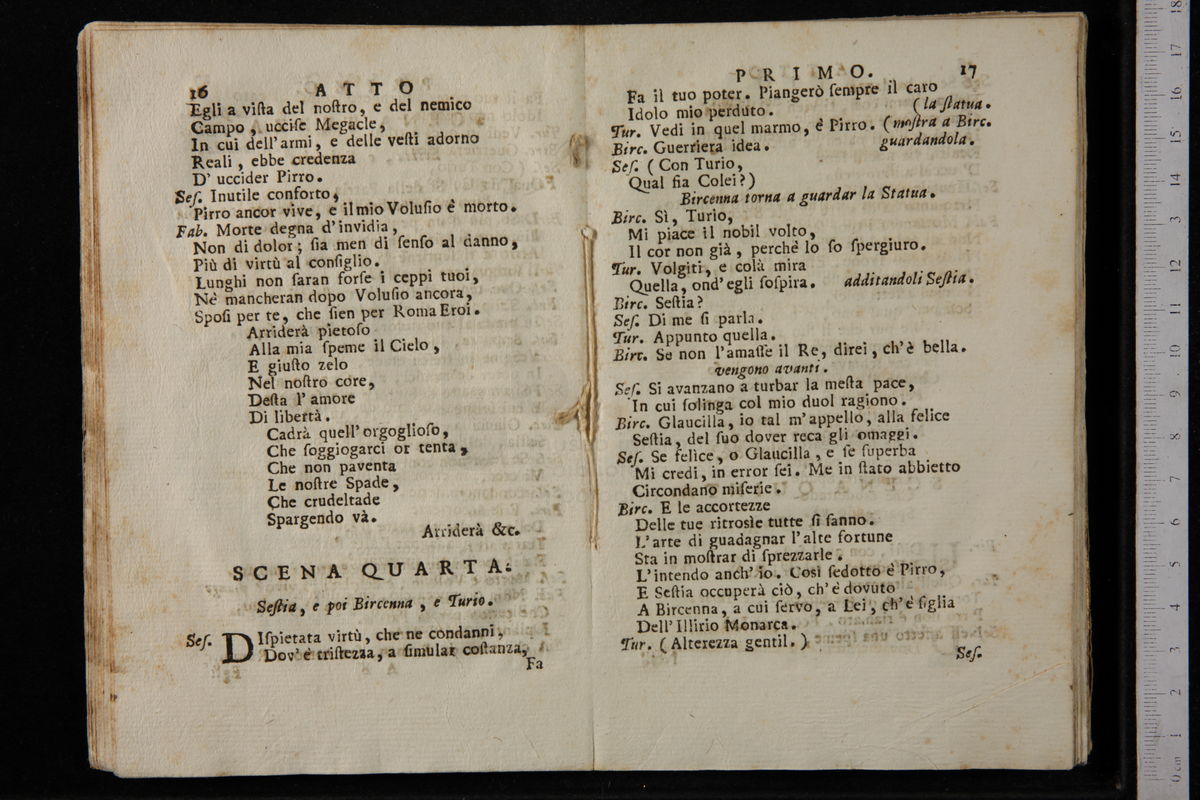 16 ATTO
Egli a viſta del noſtro, e del nemico
Campo, ucciſe Megacle,
In cui dell'armi, e delle veſti adorno
Reali, ebbe credenza
D' uccider Pirro.
Seſ. Inutile conforto,
Pirro ancor vive, e il mio Voluſio è morto.
Fab. Morte degna d'invidia,
Non di dolor; ſia men di ſenſo al danno,
Più di virtù al conſiglio.
Lunghi non ſaran forſe i ceppi tuoi,
Nè mancheran dopo Voluſio ancora,
Spoſi per te, che ſien per Roma Eroi.
Arriderà pietoſo
Alla mia ſpeme il Cielo,
E giuſto zelo
Nel noſtro core,
Deſta l' amore
Di libertà.
Cadrà quell' orgoglioſo,
Che ſoggiogarci or tenta,
Che non paventa
Le noſtre Spade,
Che crudeltade
Spargendo và.
Arriderà &c.
SCENA QUARTA.
Seſtia, e poi Bircenna, e Turio.
Seſ. DIſpietata virtù, che ne condanni,
Dov' è triſtezza, a ſimular coſtanza,
Fa
PRIMO. 17
Fa il tuo poter. Piangerò ſempre il caro
Idolo mio perduto. (la ſtatua.
Tur. Vedi in quel marmo, è Pirro. (moſtra a Birc.
Birc. Guerriera idea. guardandola.
Seſ. (Con Turio,
Qual ſia Colei?)
Bircenna torna a guardar la Statua.
Birc. Sì, Turio,
Mi piace il nobil volto,
Il cor non già, perchè lo ſo ſpergiuro.
Tur. Volgiti, e colà mira
Quella, ond' egli ſoſpira. additandoli Seſtia.
Birc. Seſtia?
Seſ. Di me ſi parla.
Tur. Appunto quella.
Birc. Se non l'amaſſe il Re, direi, ch'è bella.
vengono avanti.
Seſ. Si avanzano a turbar la meſta pace,
In cui ſolinga col mio duol ragiono.
Birc. Glaucilla, io tal m'appello, alla felice
Seſtia, del ſuo dover reca gli omaggi.
Seſ. Se felice, o Glaucilla, e ſe ſuperba
Mi credi, in error ſei. Me in ſtato abbietto
Circondano miſerie.
Birc. E le accortezze
Delle tue ritrosìe tutte ſi ſanno.
L'arte di guadagnar l'alte fortune
Sta in moſtrar di ſprezzarle.
L'intendo anch' io. Così ſedotto è Pirro,
E Seſtia occuperà ciò, ch'è dovuto
A Bircenna, a cui ſervo, a Lei, ch'è figlia
Dell' Illirio Monarca.
Tur. (Alterezza gentil.)
Seſ.
0 cm 1 2 3 4 5 6 7 8 9 10 11 12 13 14 15 16 17 18